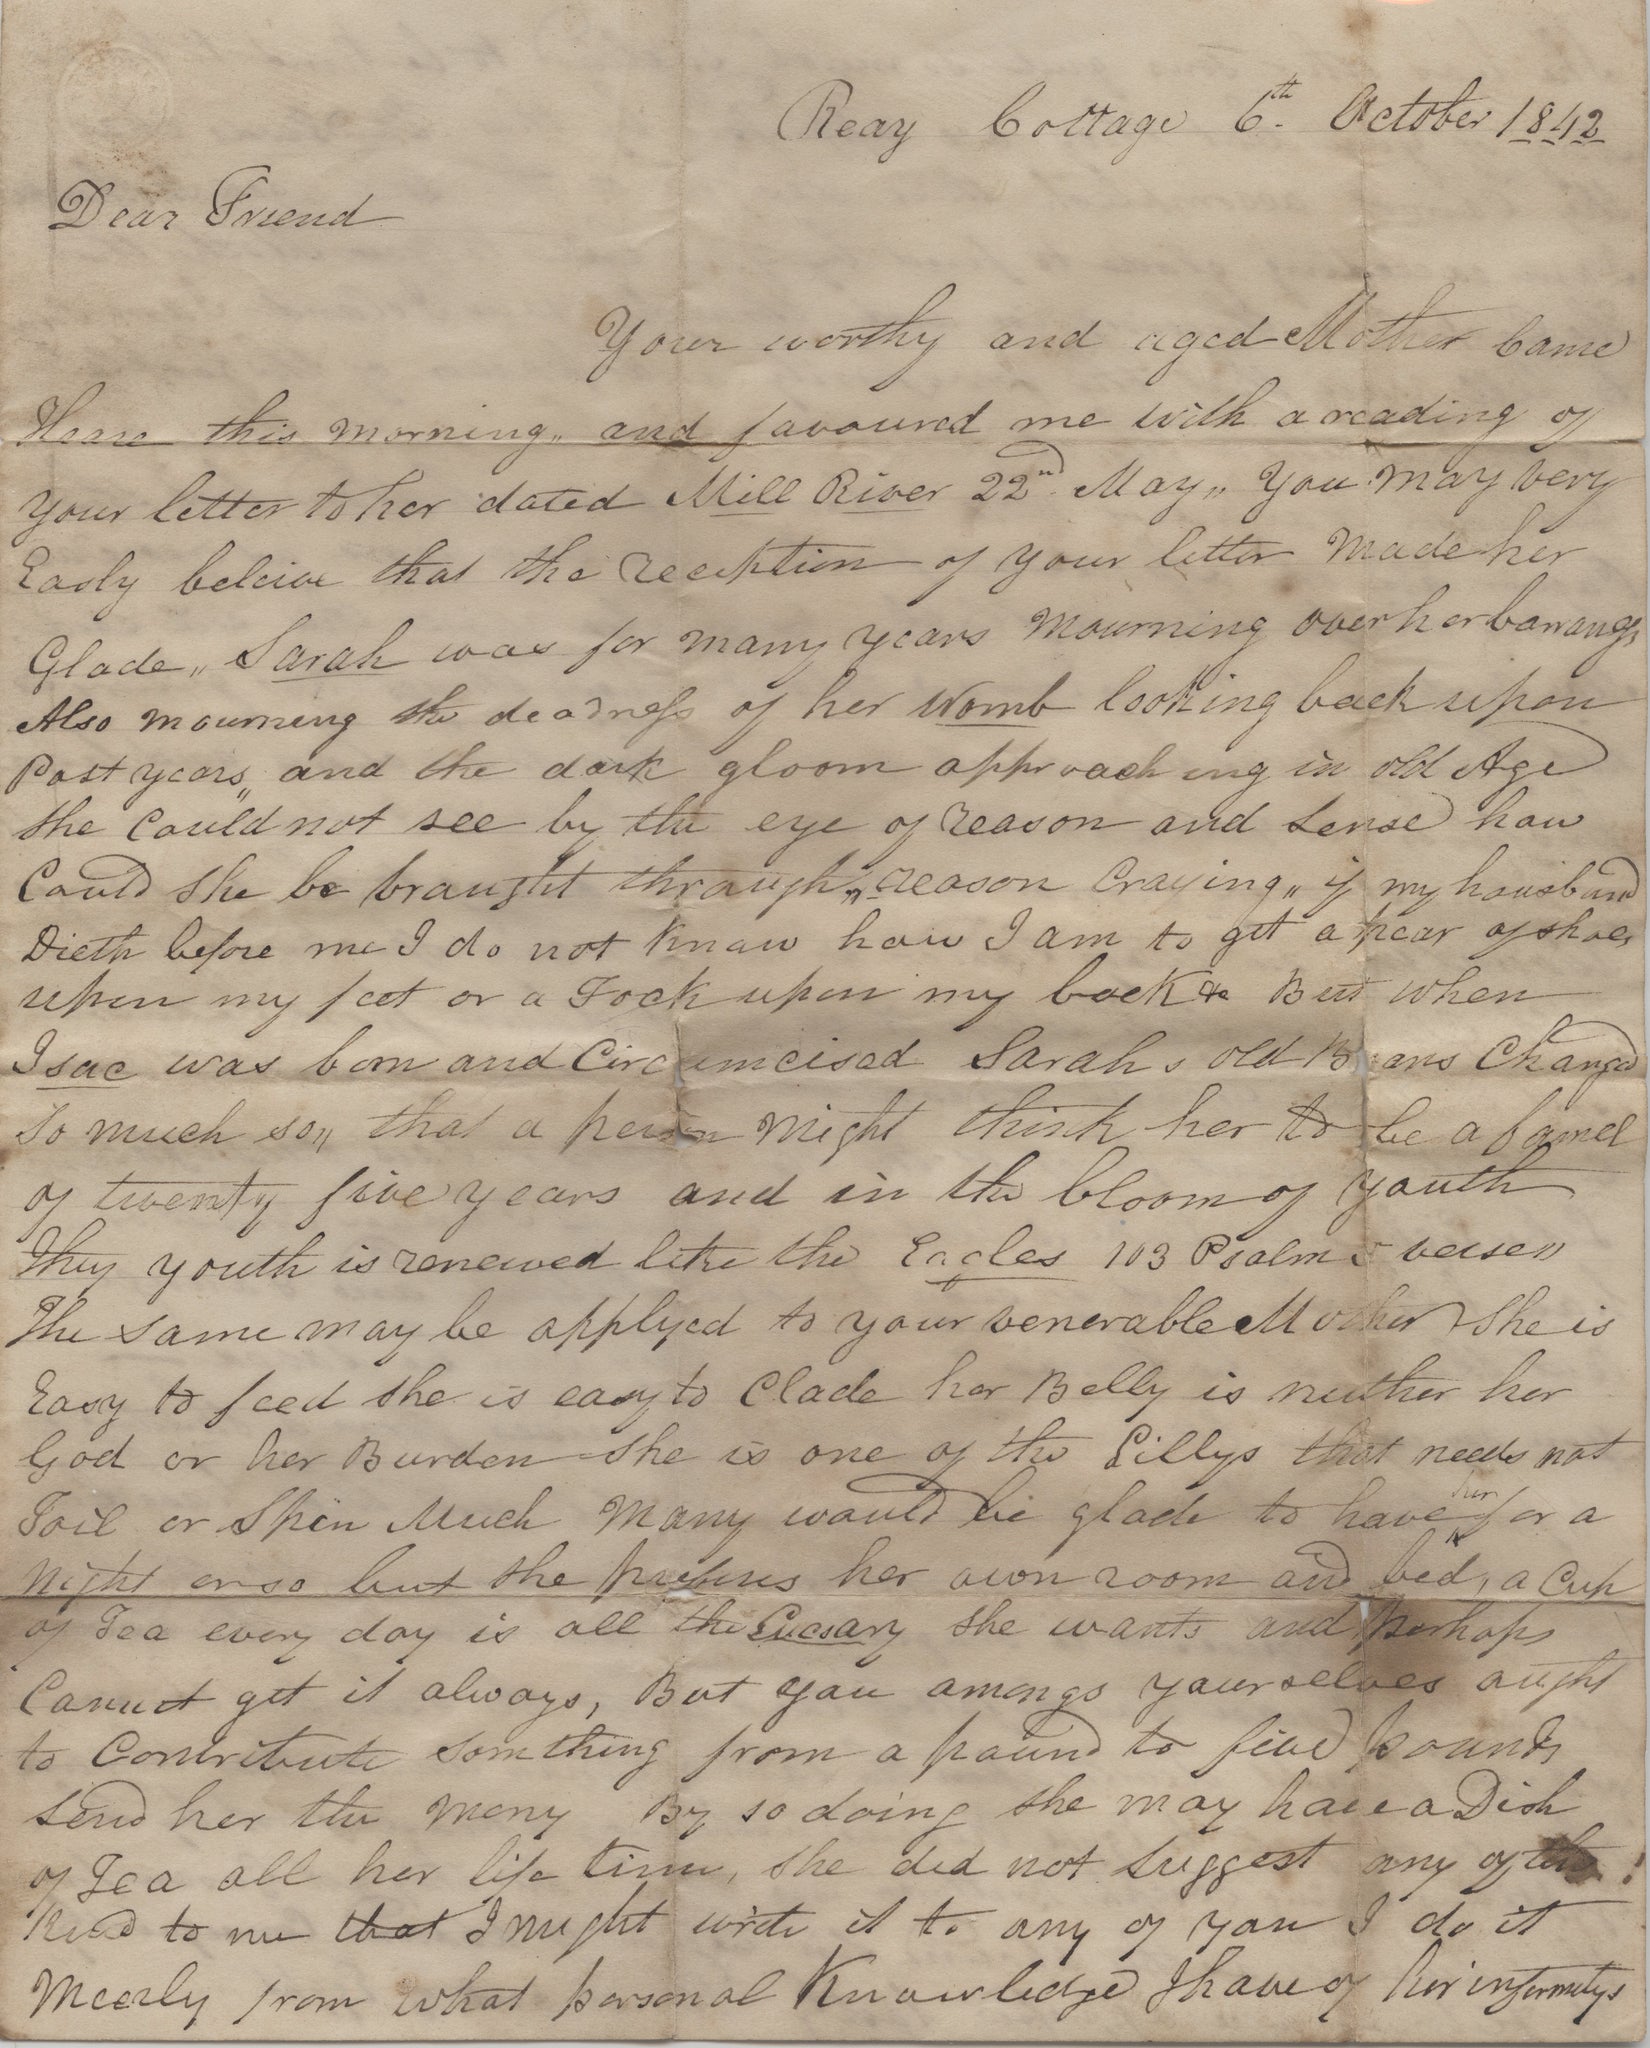 Reay Cottage 6th October 1842
Dear Friend
Your worthy and aged Mother Came
Heare this morning,, and favoured me with a reading of
your letter to her dated Mill River 22nd May,, You may very
Easly beleive that the reception of your letter made her
Glade,, Sarah was for many years mourning over her
Also mourning the deadness of her Womb looking back upon
Past years,, and the dark gloom approaching in old Age
she Could not see by the eye of reason and sense how
Could she be braught through,, reason Craying,, if my hausband
Dieth before me I do not Know how I am to get a pear of shoes
upon my feet or a Fock upon my back &c But when
Isac was born and Circumcised Sarahs old Changed
So much so,, that a person might think her to be a famel
of twenty five years and in the bloom of youth
They youth is renewed like the Eagles 103 Psalm 5 verse,,
The same may be applyed to your venerable Mother She is
Easy to feed she is easy to Clade her Belly is neither her
God or her Burden she is one of the Lillys that needs not
Toil or Spin Much Many would be glade to have her for a
night or so but she prefers her own room and bed, a Cup
of Tea every day is all the Lucsary she wants and Perhaps
Cannot get it always, But you amongs yourselves aught
to Contribute something from a pound to five pounds
send her the mony By so doing she may have a Dish
of Tea all her life time, she did not suggest any of this
Kind to me that I might write it to any of you I do it
Meerly from what personal Knowledge I have of her infermitys